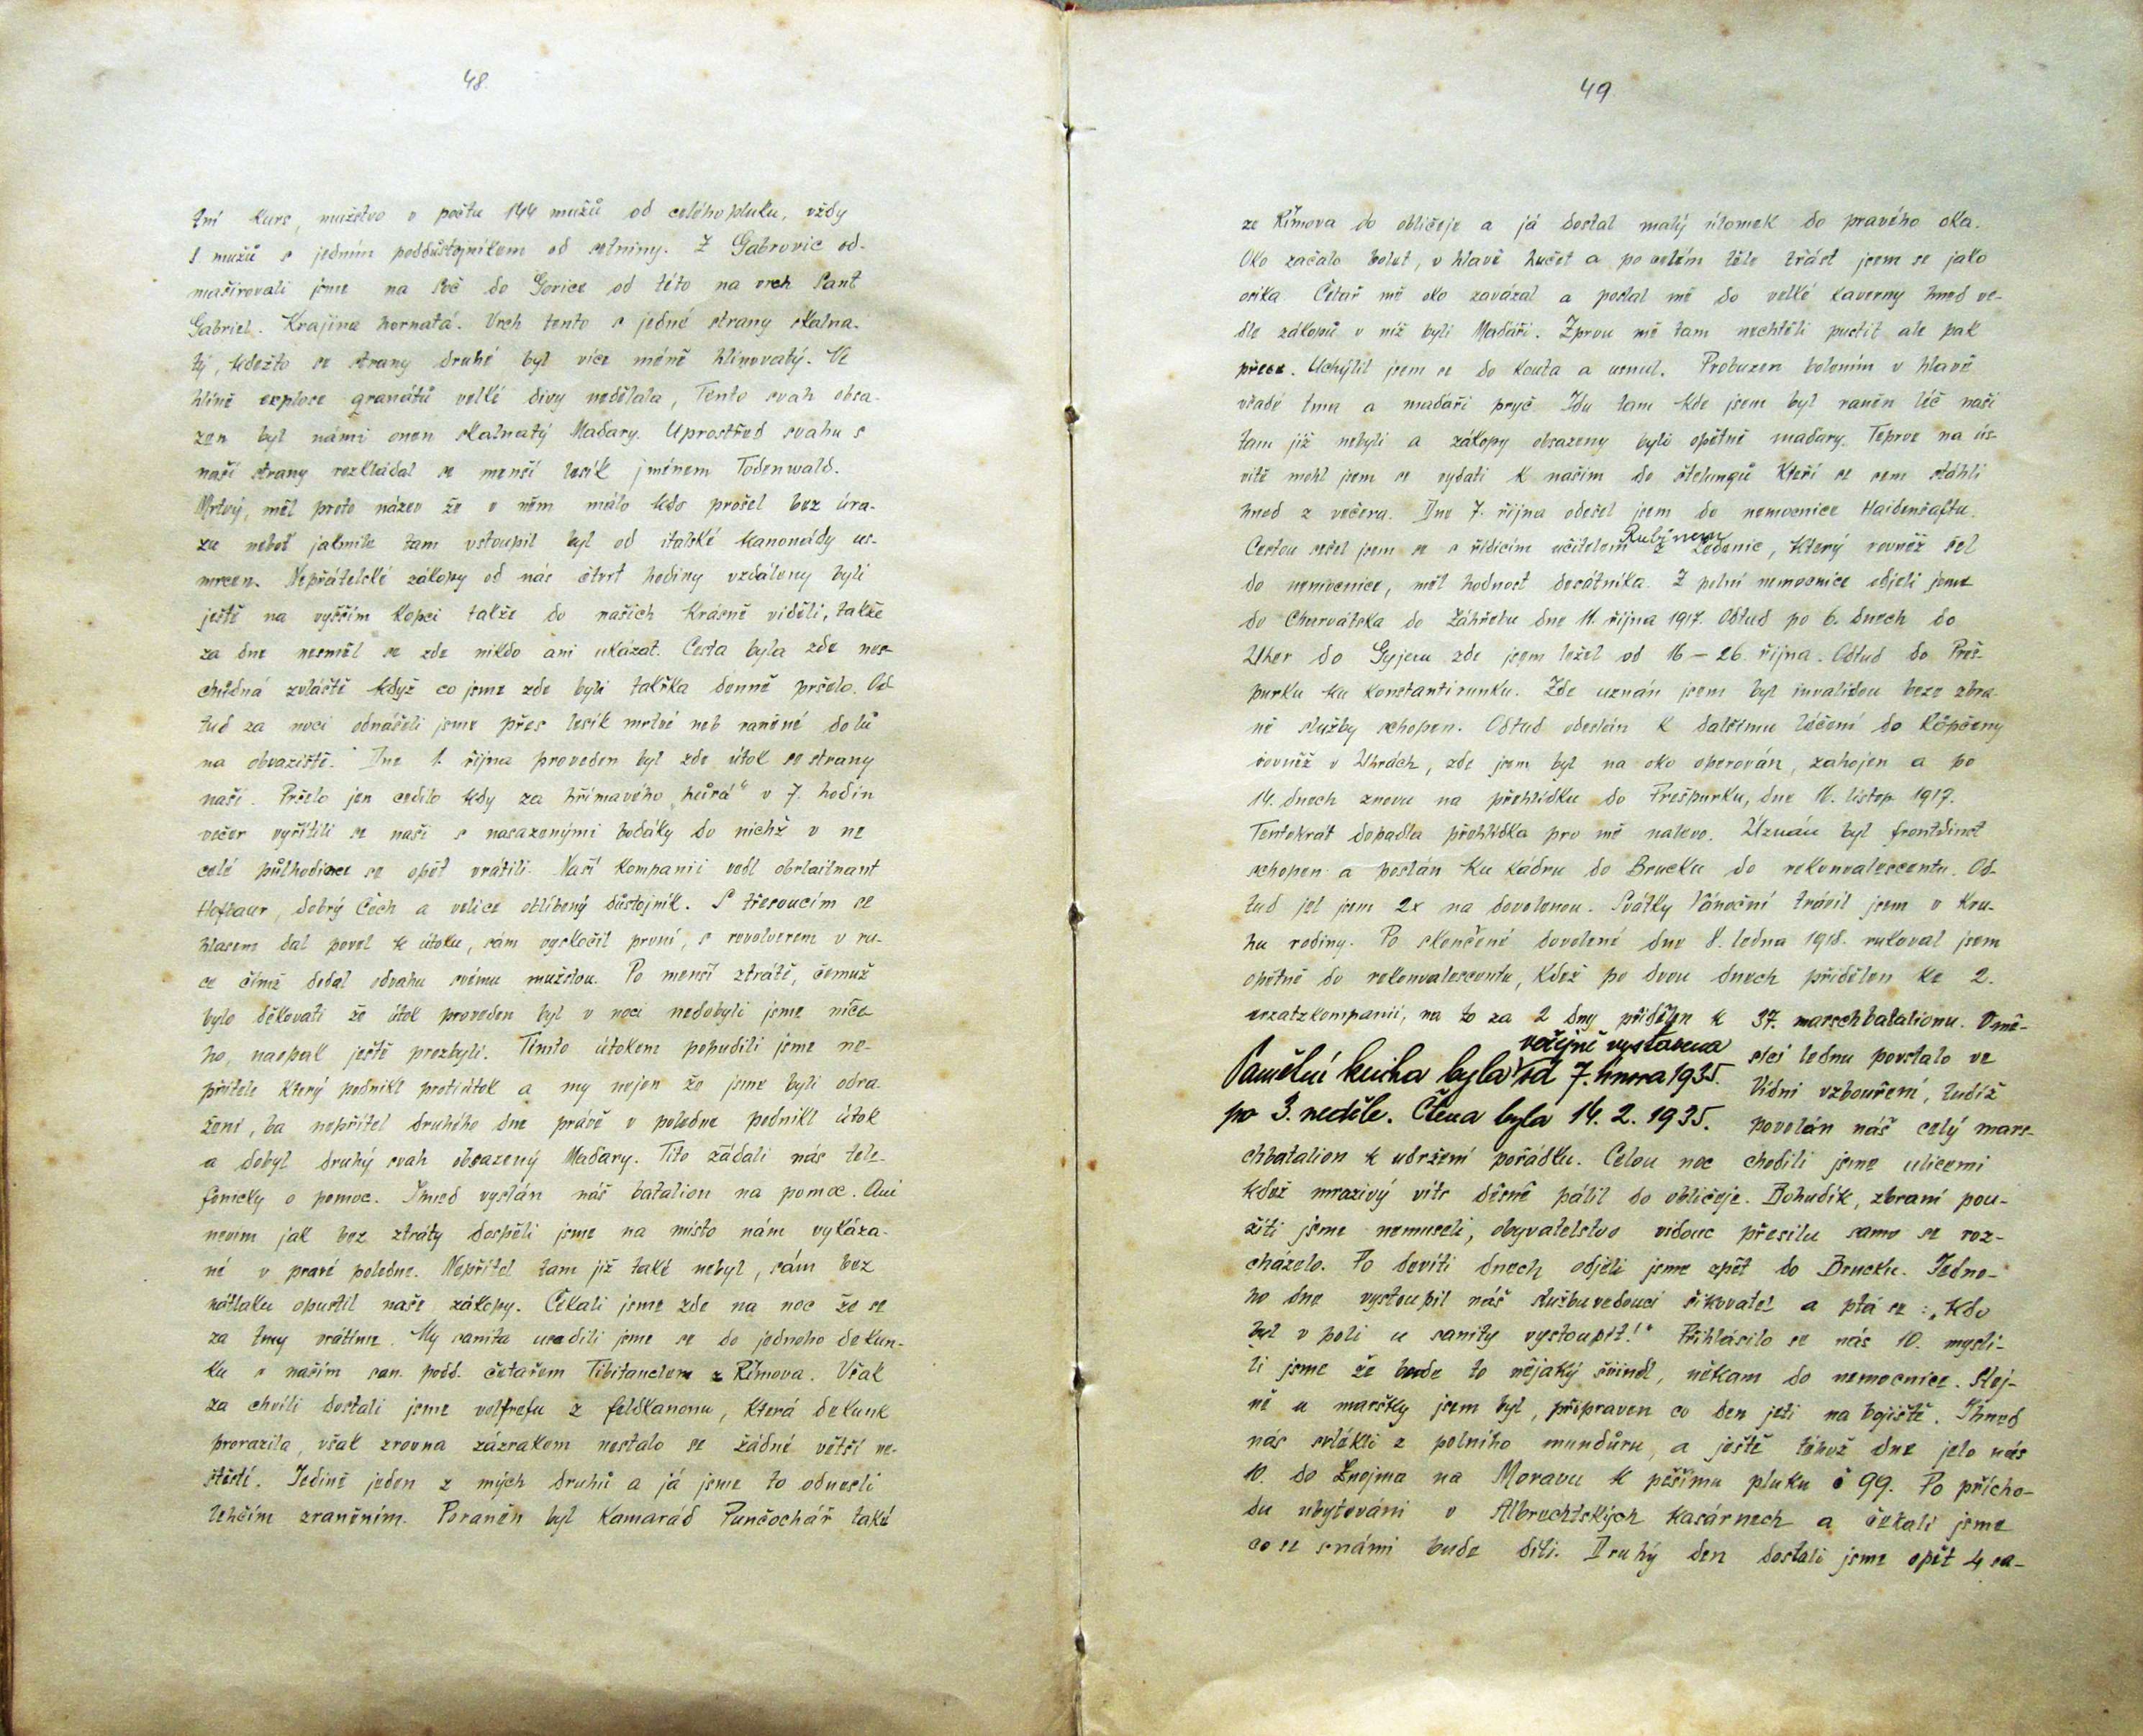 48.
tní kurs, mužstvo v počtu 144 mužů od celého pluku, vždy
8 mužů s jedním poddůstojníkem od setniny. Z Gabrovic od-
maširovali jsme na Soč do Gorice od této na vrch Sant
Gabriel. Krajina hornatá. Vrch tento s jedné strany skalna-
tý, kdežto se strany druhé byl více méně hlinovatý. Ve
hlíně explose granátů velké divy nedělala, Tento svah obsa-
zen byl námi onen skalnatý Maďary. Uprostřed svahu s
naší strany rozkládal se menší lesík jménem Todenwald.
Mrtvý, měl proto název že v něm málo kdo prošel bez úra-
zu neboť jakmile tam vstoupil byl od italské kanonády us-
mrcen. Nepřátelské zákopy od nás čtvrt hodiny vzdáleny byli
ještě na vyšším kopci takže do našich krásně viděli, takže
za dne nesměl se zde nikdo ani ukázat. Cesta byla zde nes-
chůdná zvláště když co jsme zde byli takřka denně pršelo. Od-
tud za noci odnášeli jsme přes lesík mrtvé neb raněné dolů
na obvaziště. Dne 1. října proveden byl zde útok se strany
naší. Pršelo jen cedilo kdy za hřímavého „hurá" v 7. hodin
večer vyřítili se naši s nasazenými bodáky do nichž v ne
celé půlhodince se opět vrátili. Naší kompanii vedl obrlaitnant
Hofbaur, dobrý Čech a velice oblíbený důstojník. S třesoucím se
hlasem dal povel k útoku, sám vyskočil první, s revolverem v ru-
ce čímž dodal odvahu svému mužstvu. Po menší ztrátě, čemuž
bylo děkovati že útok proveden byl v noci nedobyli jsme niče-
ho, naopak ještě prozbyli. Tímto útokem popudili jsme ne-
přítele který podnikl protiútok a my nejen že jsme byli odra
ženi, ba nepřítel druhého dne právě v poledne podnikl útok
a dobyl druhý svah obsazený Maďary. Tito žádali nás tele-
fonicky o pomoc. Ihned vyslán náš batalion na pomoc. Ani
nevím jak bez ztráty dospěli jsme na místo nám vykáza-
né v pravé poledne. Nepřítel tam již také nebyl, sám bez
nátlaku opustil naše zákopy. Čekali jsme zde na noc že se
za tmy vrátíme. My sanita usadili jsme se do jednoho dekun-
ku s naším san. podd. četařem Tibitanclem z Římova. Však
za chvíli dostali jsme volfrefu z feldkanonu, která dekunk
prorazila, však zrovna zázrakem nestalo se žádné větší ne-
štěstí. Jedině jeden z mých druhů a já jsme to odnesli
lehčím zraněním. Poraněn byl kamarád Punčochář také
49
ze Římova do obličeje a já dostal malý úlomek do pravého oka.
Oko začalo bolet, v hlavě hučet a po celém těle třást jsem se jako
osika. Četař mě oko zavázal a poslal mě do velké kaverny hned ve-
dle zákopů v níž byli Maďáři. Zprvu mě tam nechtěli pustit ale pak
přece. Uchýlil jsem se do kouta a usnul. Probuzen bolením v hlavě
všade tma a maďáři pryč. Jdu tam kde jsem byl raněn léč naši
tam již nebyli a zákopy obsazeny byli opětně maďary. Teprve na ús-
vitě mohl jsem se vydati k našim do štelungů kteří se sem stáhli
hned z večera. Dne 7. října odešel jsem do nemocnice Haidenšaftu.
Cestou sešel jsem se s řídícím učitelem Rubínem z Ledenic, který rovněž šel
do nemocnice, měl hodnost desátníka. Z polní nemocnice odjeli jsme
do Charvátska do Záhřebu dne 11. října 1917. Odtud po 6. dnech do
Uher do Gyjeru zde jsem ležel od 16 – 26. října. Odtud do Preš-
purku ku konstantirunku. Zde uznán jsem byl invalidou beze zbra-
ně služby schopen. Odtud odeslán k dalšímu léčení do Köpčeny
rovněž v Uhrách, zde jsem byl na oko operován, zahojen a po
14. dnech znovu na přehlídku do Prešpurku, dne 16. listop 1917.
Tentokrát dopadla přehlídka pro mě nalevo. Uznán byl frontdinst
schopen a poslán ku kádru do Brucku do rekonvalescentu. Od-
tud jel jsem 2x na dovolenou. Svátky Vánoční trávil jsem v kru-
hu rodiny. Po skončené dovolené dne 8. ledna 1918. rukoval jsem
opětně do rekonvalescentu, kdež po dvou dnech přidělen ke 2.
ersatzkompanii, na to za 2 dny přidělen k 37. marschbatalionu. V mě-
síci lednu povstalo ve
Vídni vzbouření, tudíž
povolán náš celý mars-
Pamětní kniha byla veřejně vystavena od 7. února 1935.
po 3. neděle. Čtena byla 14. 2. 1935.
chbatalion k udržení pořádku. Celou noc chodili jsme ulicemi
kdež mrazivý vítr děsně pálil do obličeje. Bohudík, zbraní pou-
žíti jsme nemuseli, obyvatelstvo vidouc přesilu samo se roz-
cházelo. Po devíti dnech odjeli jsme zpět do Brucku. Jedno-
ho dne vystoupil náš službuvedoucí šikovatel a ptá se: „Kdo
byl v poli u sanity vystoupit!" Přihlásilo se nás 10. mysli-
li jsme že bude to nějaký švindl, někam do nemocnice. Stej-
ně u maršky jsem byl, připraven co den jeti na bojiště. Ihned
nás svlékli z polního mundůru, a ještě téhož dne jelo nás
10. do Znojma na Moravu k pěšímu pluku č 99. Po přícho-
du ubytováni v Albrechtských kasárnech a čekali jsme
co se snámi bude díti. Druhý den dostali jsme opět 4 sa-